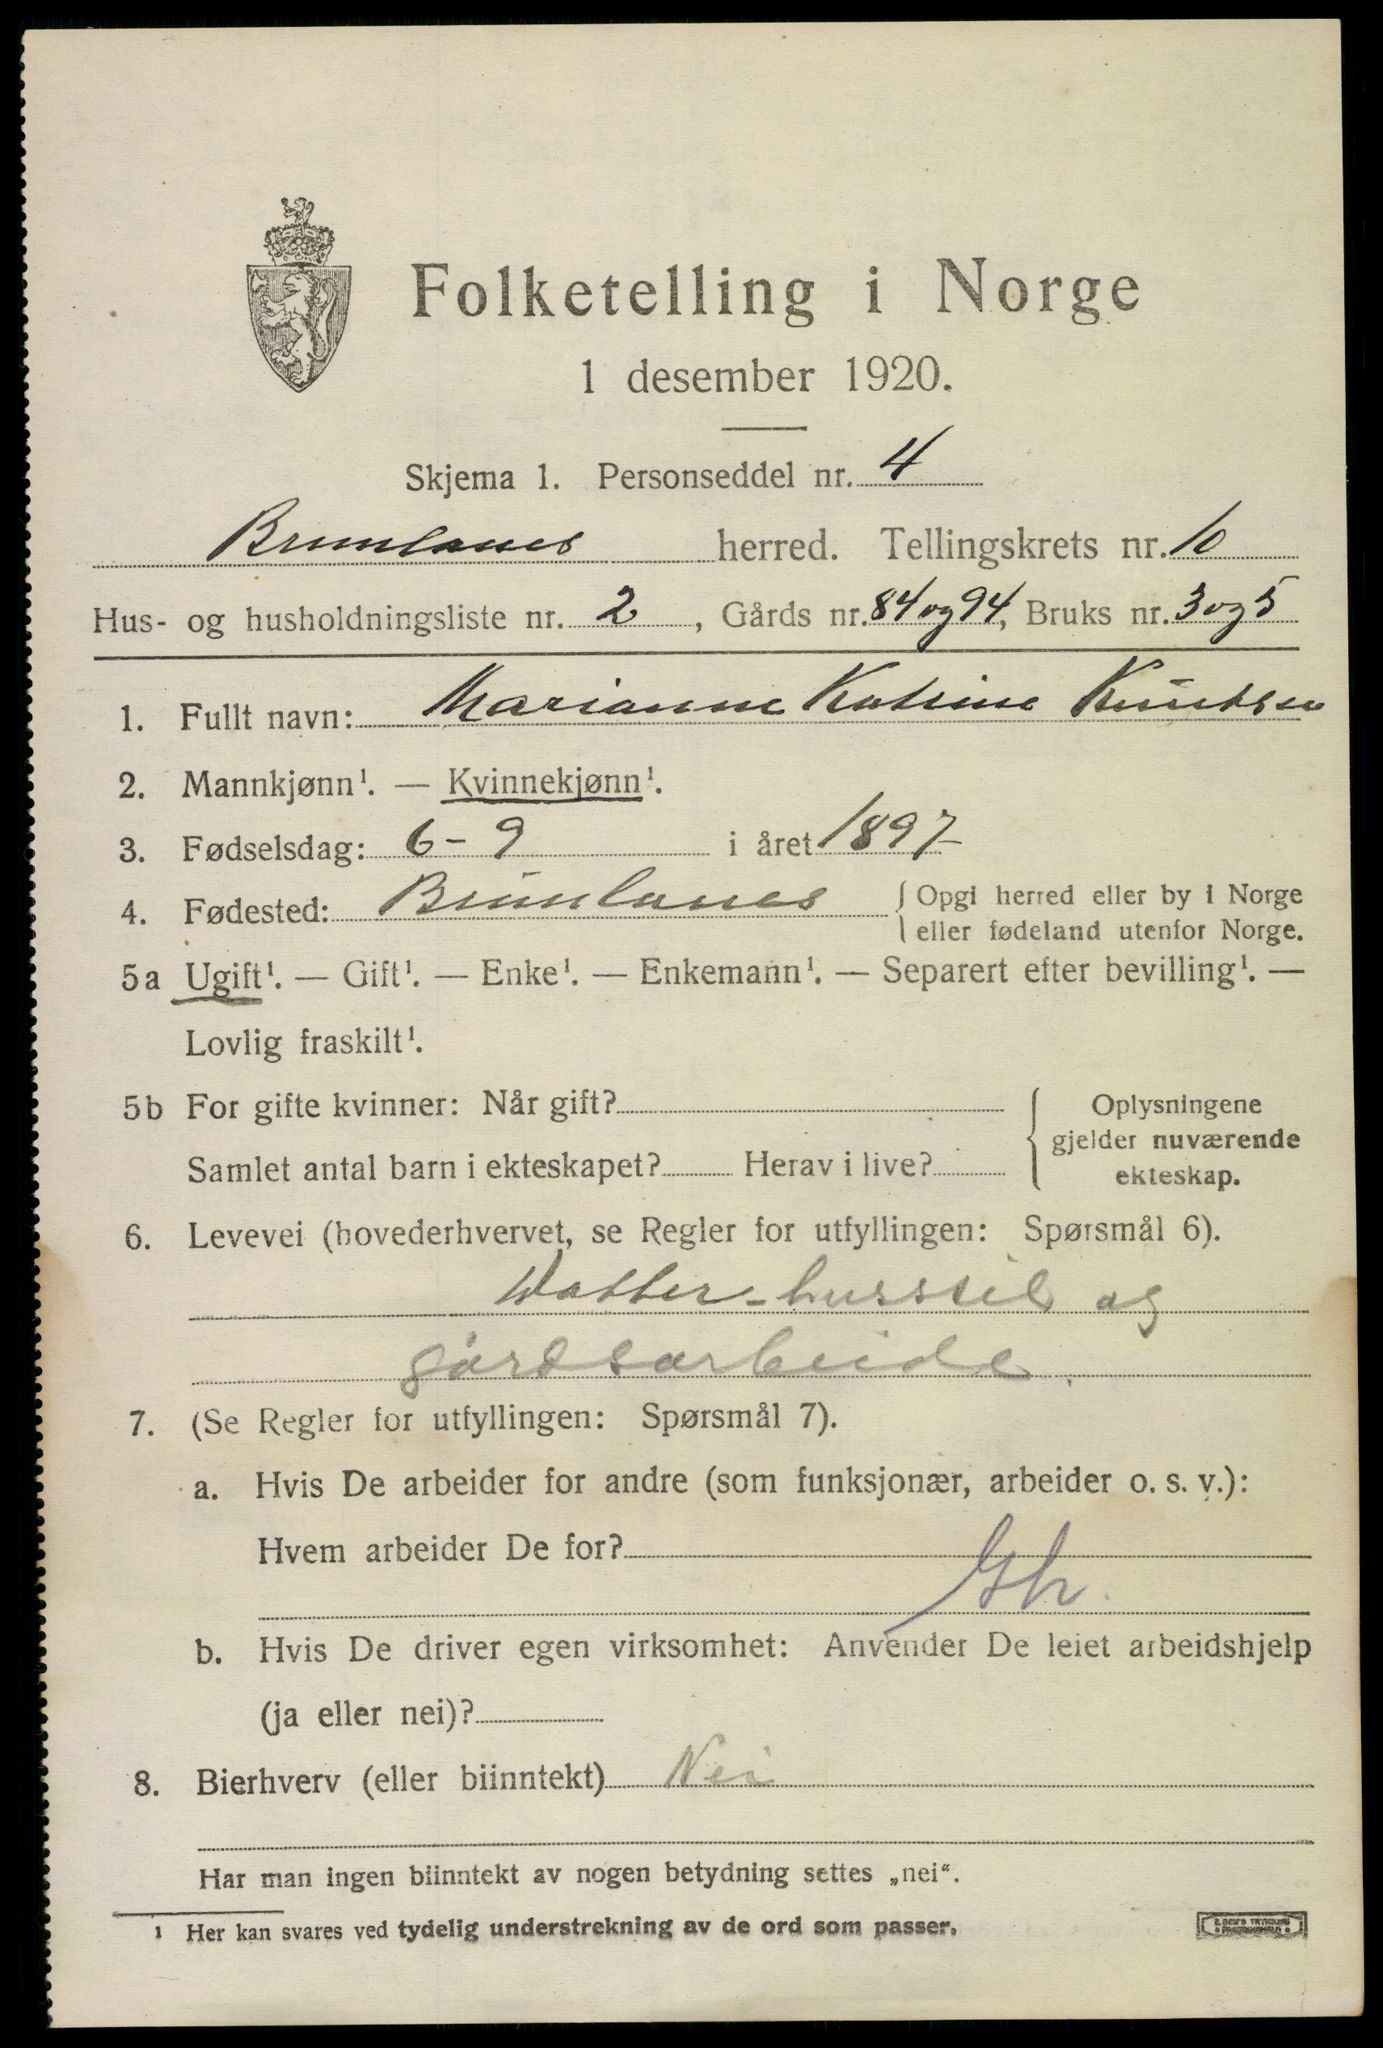 Folketelling i Norge
1 desember 1920.
Skjema 1. Personseddel nr. 4
Brunlanes herred. Tellingskrets nr. 10
Hus- og husholdningsliste nr. 2, Gårds nr. 84 og 94, Bruks nr. 3 og 5
1. Fullt navn: Marianne Katrine Knutsen
2. Mannkjønn¹. — Kvinnekjønn¹.
3. Fødselsdag: 6-9 i året 1897
4. Fødested: Brunlanes { Opgi herred eller by i Norge
eller fødeland utenfor Norge.
5a Ugift¹. — Gift¹. — Enke¹. — Enkemann¹. — Separert efter bevilling¹. —
Lovlig fraskilt¹.
5b For gifte kvinner: Når gift? { Oplysningene
gjelder nuværende
Samlet antal barn i ekteskapet? Herav i live? ekteskap.
6. Levevei (hovederhvervet, se Regler for utfyllingen: Spørsmål 6).
Datter - husstel og
gårdsarbeide.
7. (Se Regler for utfyllingen: Spørsmål 7).
a. Hvis De arbeider for andre (som funksjonær, arbeider o. s. v.):
Hvem arbeider De for?
Gh.
b. Hvis De driver egen virksomhet: Anvender De leiet arbeidshjelp
(ja eller nei)?
8. Bierhverv (eller biinntekt) Nei
Har man ingen biinntekt av nogen betydning settes „nei“.
¹ Her kan svares ved tydelig understrekning av de ord som passer.